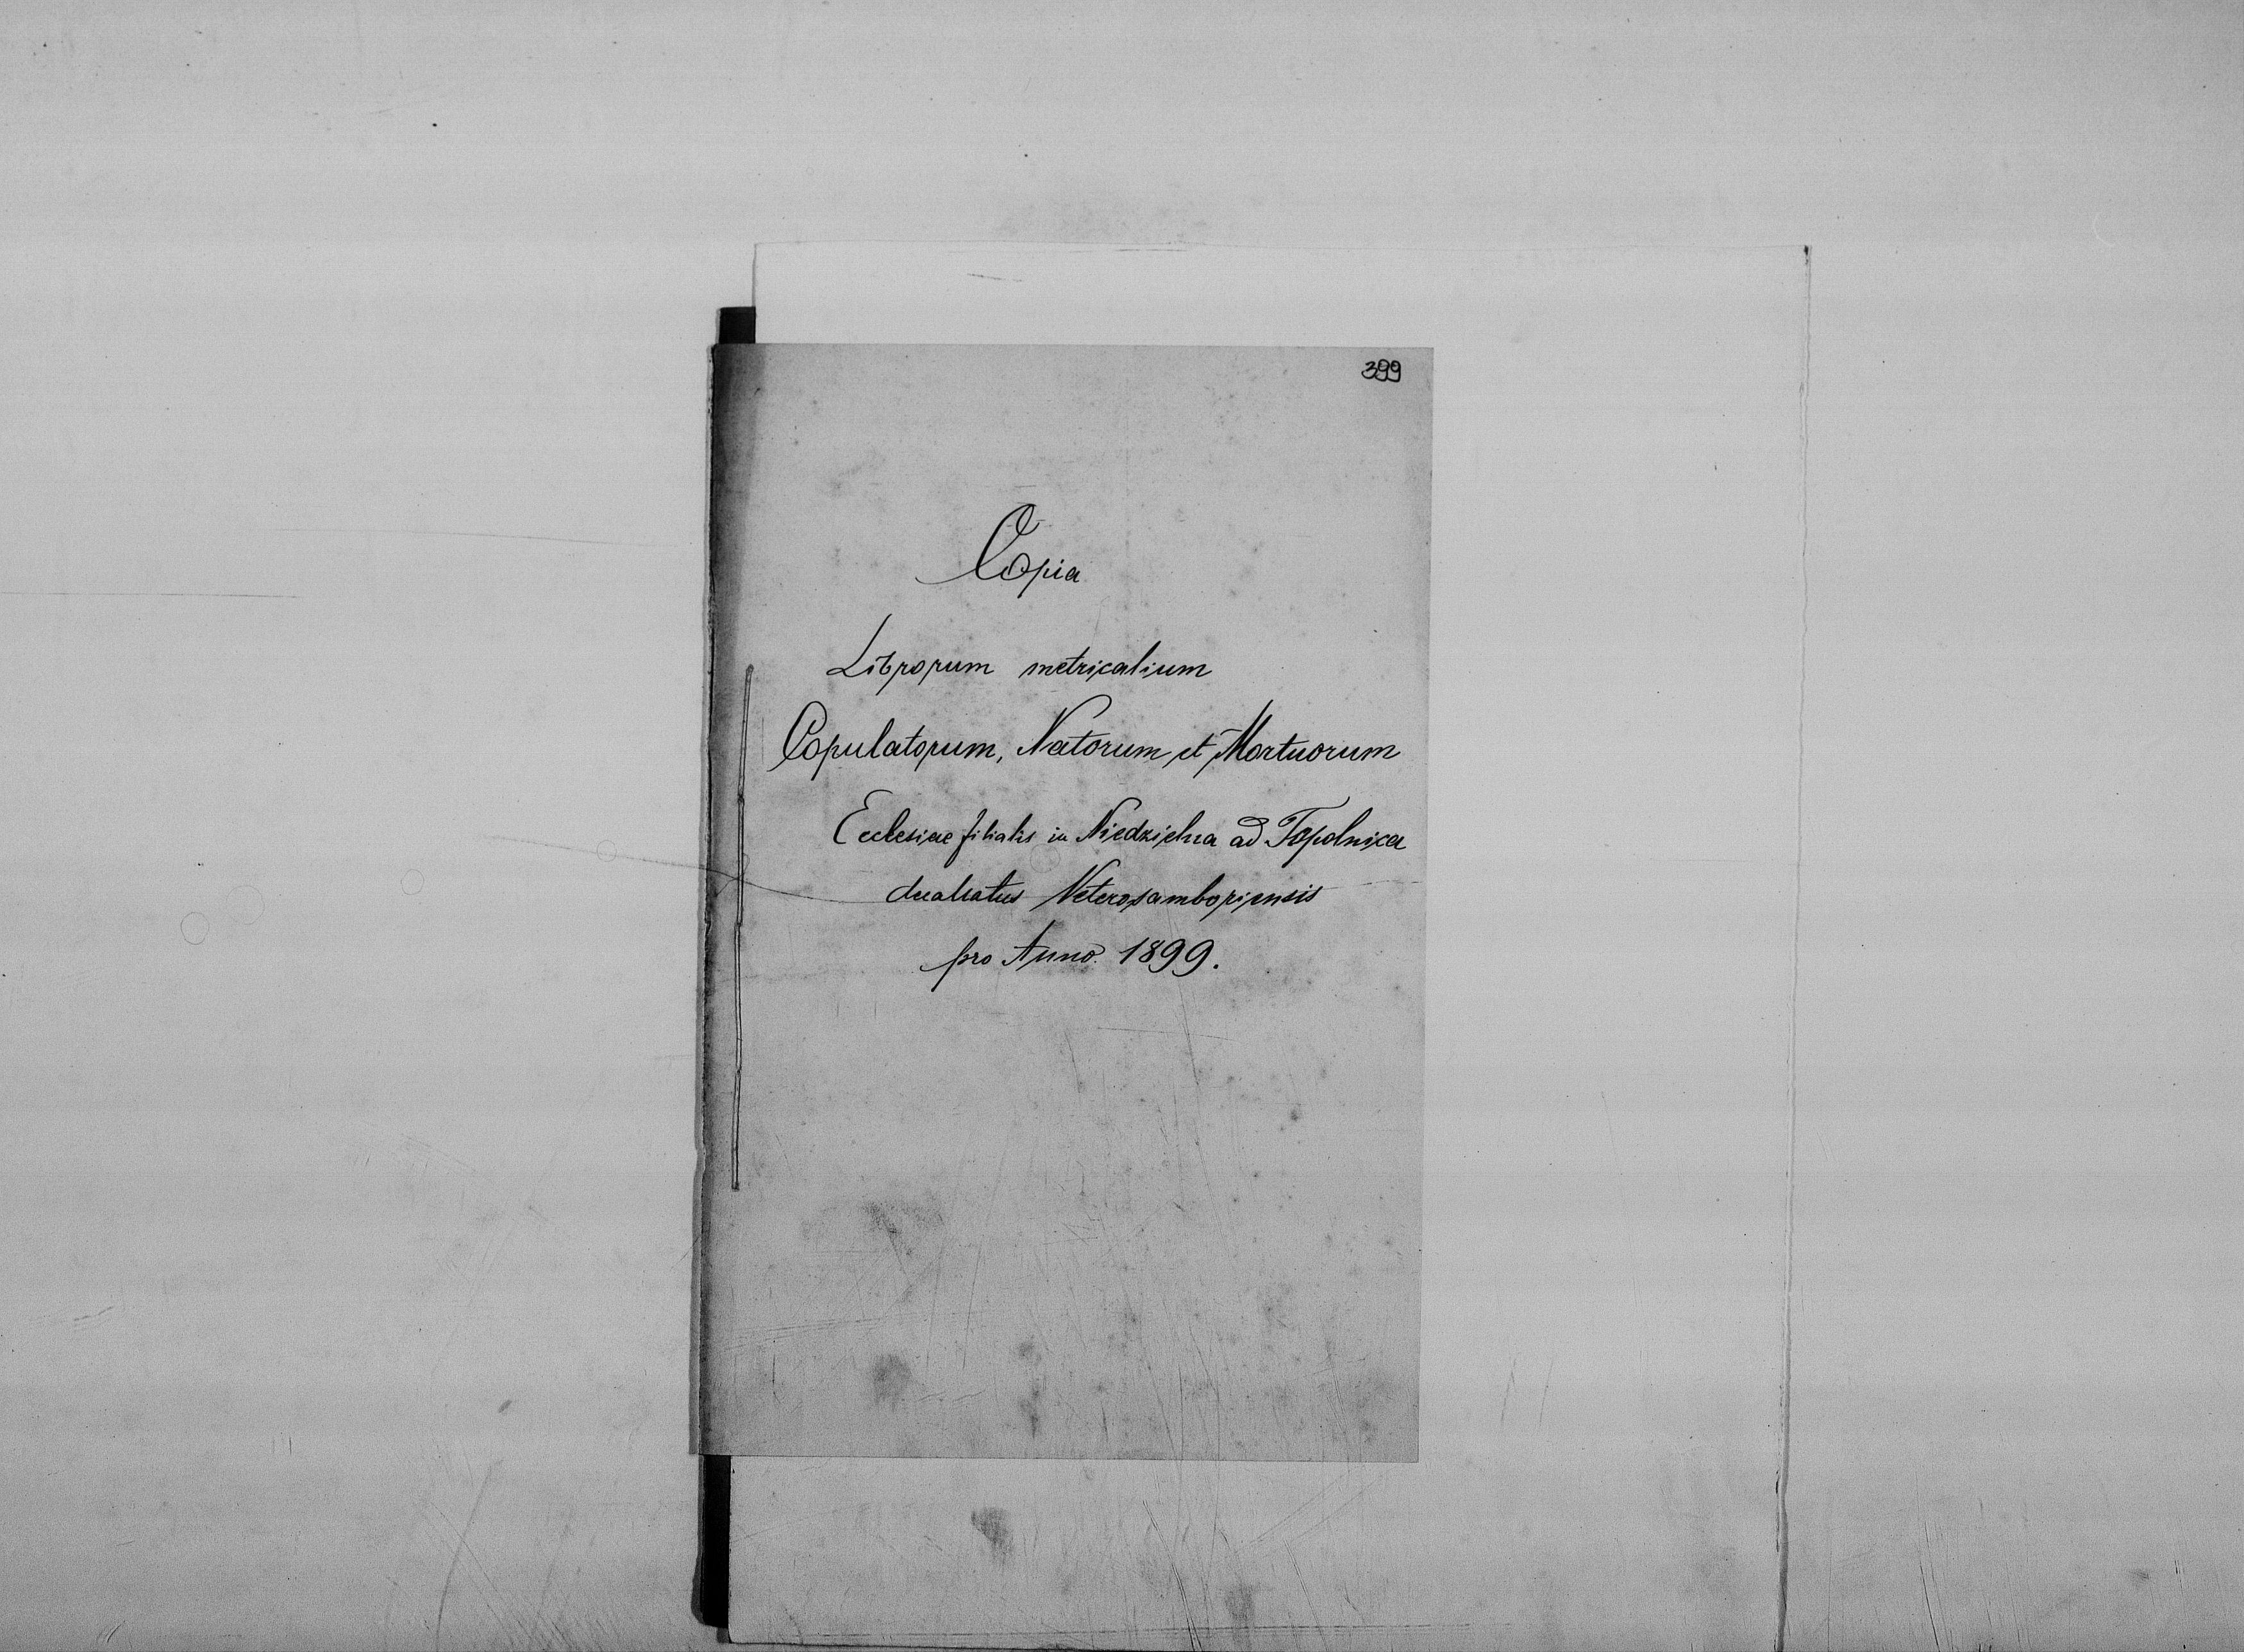 399
Copia
Librorum metricalium
Copulatorum, Natorum et Mortuorum
Ecclesiae filialis in Niedzielna ad Topolnica
decanatus Veterosamboriensis
pro Anno 1899.